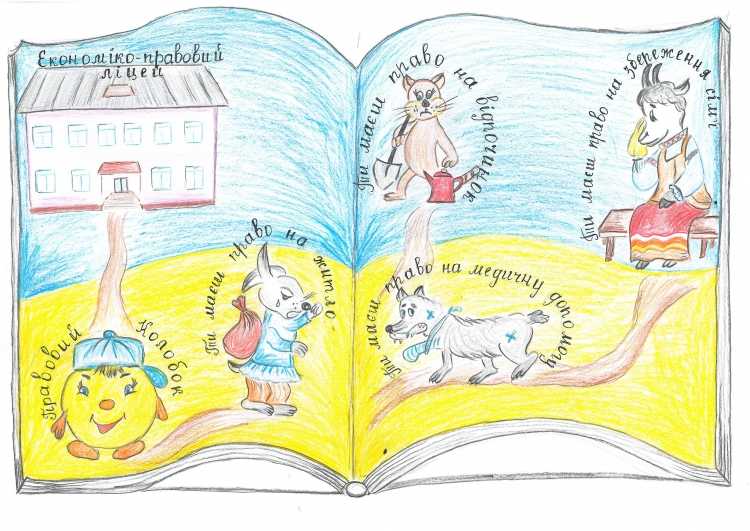 Економіко-правовий
ліцей
Правовий Колобок
Ти маєш право на житло
Ти маєш право на відпочинок
Ти маєш право на медичну допомогу
Ти маєш право на збереження сім'ї